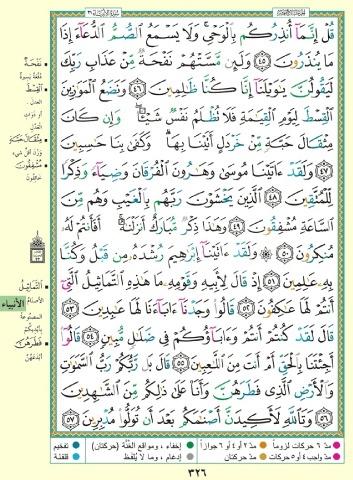 سُورَةُ الأَنبِيَاء ٢١
قُلْ إِنَّمَآ أُنذِرُكُم بِٱلْوَحْىِ ۚ وَلَا يَسْمَعُ ٱلصُّمُّ ٱلدُّعَآءَ إِذَا
مَا يُنذَرُونَ ٤٥ وَلَئِن مَّسَّتْهُمْ نَفْحَةٌ مِّنْ عَذَابِ رَبِّكَ
لَيَقُولُنَّ يَٰوَيْلَنَآ إِنَّا كُنَّا ظَٰلِمِينَ ٤٦ وَنَضَعُ ٱلْمَوَٰزِينَ
ٱلْقِسْطَ لِيَوْمِ ٱلْقِيَٰمَةِ فَلَا تُظْلَمُ نَفْسٌ شَيْـًٔا ۖ وَإِن كَانَ
مِثْقَالَ حَبَّةٍ مِّنْ خَرْدَلٍ أَتَيْنَا بِهَا ۗ وَكَفَىٰ بِنَا حَٰسِبِينَ
٤٧ وَلَقَدْ ءَاتَيْنَا مُوسَىٰ وَهَٰرُونَ ٱلْفُرْقَانَ وَضِيَآءً وَذِكْرًا
لِّلْمُتَّقِينَ ٤٨ ٱلَّذِينَ يَخْشَوْنَ رَبَّهُم بِٱلْغَيْبِ وَهُم مِّنَ
ٱلسَّاعَةِ مُشْفِقُونَ ٤٩ وَهَٰذَا ذِكْرٌ مُّبَارَكٌ أَنزَلْنَٰهُ ۚ أَفَأَنتُمْ لَهُۥ
مُنكِرُونَ ٥٠ ۞ وَلَقَدْ ءَاتَيْنَآ إِبْرَٰهِيمَ رُشْدَهُۥ مِن قَبْلُ وَكُنَّا
بِهِۦ عَٰلِمِينَ ٥١ إِذْ قَالَ لِأَبِيهِ وَقَوْمِهِۦ مَا هَٰذِهِ ٱلتَّمَاثِيلُ ٱلَّتِىٓ
أَنتُمْ لَهَا عَٰكِفُونَ ٥٢ قَالُوا۟ وَجَدْنَآ ءَابَآءَنَا لَهَا عَٰبِدِينَ ٥٣
قَالَ لَقَدْ كُنتُمْ أَنتُمْ وَءَابَآؤُكُمْ فِى ضَلَٰلٍ مُّبِينٍ ٥٤ قَالُوٓا۟
أَجِئْتَنَا بِٱلْحَقِّ أَمْ أَنتَ مِنَ ٱللَّٰعِبِينَ ٥٥ قَالَ بَل رَّبُّكُمْ رَبُّ ٱلسَّمَٰوَٰتِ
وَٱلْأَرْضِ ٱلَّذِى فَطَرَهُنَّ وَأَنَا۠ عَلَىٰ ذَٰلِكُم مِّنَ ٱلشَّٰهِدِينَ
٥٦ وَتَٱللَّهِ لَأَكِيدَنَّ أَصْنَٰمَكُم بَعْدَ أَن تُوَلُّوا۟ مُدْبِرِينَ ٥٧
نَفْحَةٌ
الْقِسْطَ
العدل
أو ذوات
العدل
مِثْقَالَ حَبَّةٍ
مُشْفِقُونَ
خائفون
التَّمَاثِيلُ
الأصنام
المصنوعة
بأيديكم
فَطَرَهُنَّ
أبدعهن
الأنبياء
مدّ ٦ حركات لزوماً
مدّ ٢ أو ٤ أو ٦ جوازاً
مدّ واجب ٤ أو ٥ حركات
مدّ حركتان
إخفاء، ومواقع الغنّة (حركتان)
إدغام، وما لا يُلفظ
تفخيم
قلقلة
٣٢٦